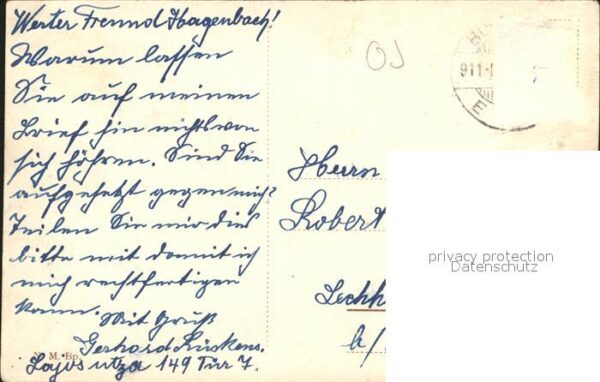 Werter Freund Hagenbach!
Warum lassen
Sie auf meinen
Brief hin nichts von
sich höhren. Sind Sie
aufgehetzt gegen mich?
Teilen Sie mir dies
bitte mit damit ich
mich rechtfertigen
kann.
Mit Gruß
Gerhard Lüskens.
Lajos utza 149 Tür 7.
M. Bp.
OJ
911-
E
Herrn
Robert
Lechh
b/
privacy protection
Datenschutz